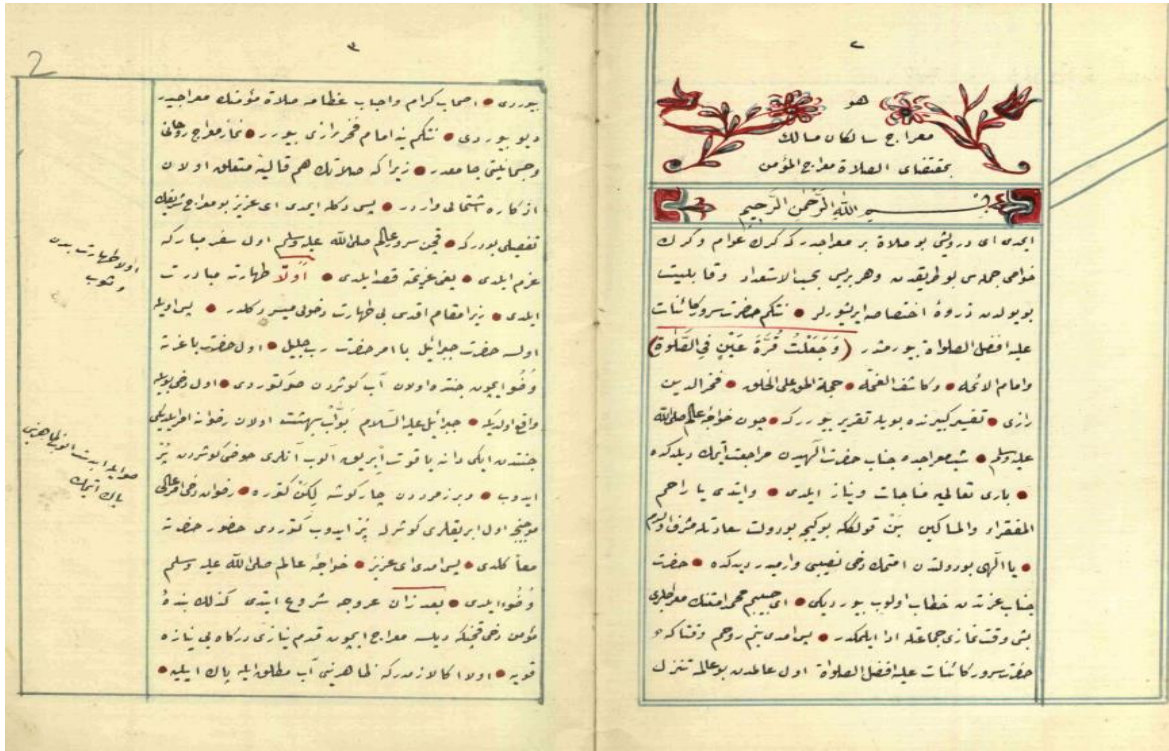 ٢
هو
معراج سالكان مسالك
بمقتضاى الصلاة معراج المؤمن
بسم اللّٰه الرَّحْمٰنِ الرَّحِيمِ
ايمدى اى درويش بو صلاة بر معراجدر كه كرك عوام و كرك
خواص جمله سى بو طريقدن و هر بريسى بحسب الاستعداد و قابليت
بو يولدن ذروۀ اختصاصه ايريشورلر • نتكم حضرت سرور كائنات
عليه افضل الصلواة بيورمشدر (وَجَعَلْتُ قُرَّةَ عَيْنٍ فِي الصَّلٰوةِ)
وامام الائمه • وكاشف الغمّه • حجة الحق على الخلق • فخر الدين
رازى • تفسير كبيرنده بويله تقرير بيورر كه • چون خواجۀ عالم صلى اللّٰه
عليه وسلم • شب معراجده جناب حضرت الٓهيدن مراجعت ايتمك ديلدكده
• بارى تعاليه مناجات ونياز ايلدى • وايتدى يا راحم
الفقراء والمساكين بن قولكه بو كيجه بو دولت سعادتله مشرف اولدم
• يا الٓهى بو دولتدن امتمك دخى نصيبى وارميدر ديدكده • حضرت
جناب عزتدن خطاب اولوب بيورديكى • اى حبيبم محمد امتنك معراجلرى
بش وقت نمازى جماعتله ادا ايلمكدر • پس امدى بنم روحم وقتاكه
حضرت سرور كائنات عليه افضل الصلواة اول عالمدن بو عالمه تنزل
٣
2
بيوردى • اصحاب كرام واحباب عظامه صلاة مؤمنك معراجيدر
ديو بيوردى • نتكم ينه امام فخر رازى بيورر • نماز معراج روحانى
وجسمانيتى جامعدر • زيرا كه صلاتك هم قالبه متعلق اولان
اذكاره شتمالى واردر • پس دكله ايمدى اى عزيز بو معراج شريفك
تفصيلى بودر كه • قچن سرور عالم صلى اللّٰه عليه وسلم اول سفر مباركه
عزم ايلدى • يعنى عزيمته قصد ايلدى • اَوَّلًا طهارت مبادرت
ايلدى • زيرا مقام اقدسى بى طهارت دخولى ميسر دكلدر • پس اويله
اولسه حضرت جبرائيل با امر حضرت رب جليل • اول حضرت با عزته
وُضُوء ايچون جنتده اولان آب كوثردن صو كتوردى • اول دخى بويله
واقع اولديكه • جبرائيل عليه السلام بَوَّابِ بهشتده اولان رضوانه امر ايلديكى
جنتدن ايكى دانه ياقوت ابريق الوب آنلرى حوض كوثردن پُر
ايدوب • وبر زمرددن چار كوشه لِكَن كتوره • رضوان دخى امر عالى
موجبنجه اول ابريقلرى كوثرله پُر ايدوب كتوردى حضور حضرته
معاً كلدى • پس امدى اى عزيز • خواجۀ عالم صلى اللّٰه عليه وسلم
وُضُوء ايلدى • بعد زان عروجه شروع ايتدى كذلك بندۀ
مؤمن دخى قچنكه ديلسه معراج ايچون قدم نيازى دركاه بى نيازه
قويه • اولا اكا لازمدر كه ظاهرنى آب مطلق ايله پاك ايليه •
اولا طهارت بدن
و ثوب
صو ايله ابدست الوب ظاهرينى
پاك ايتمك